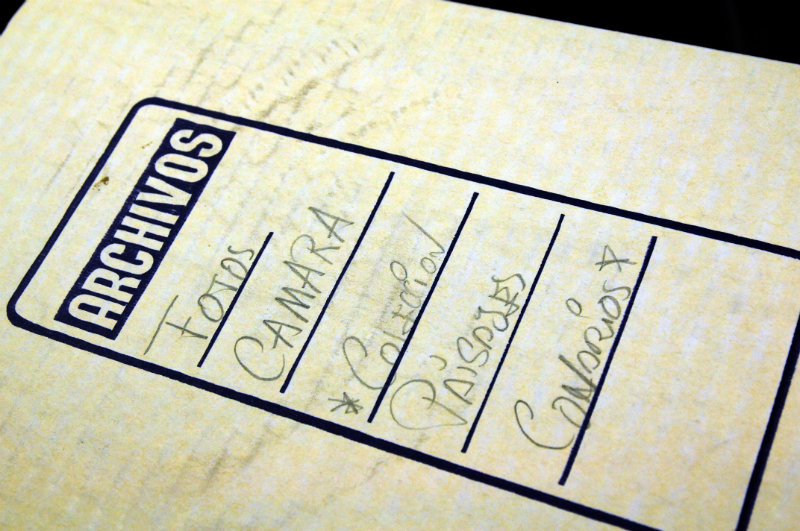 ARCHIVOS
FOTOS
CAMARA
* COLECION
PAISAJES
CANARIOS *